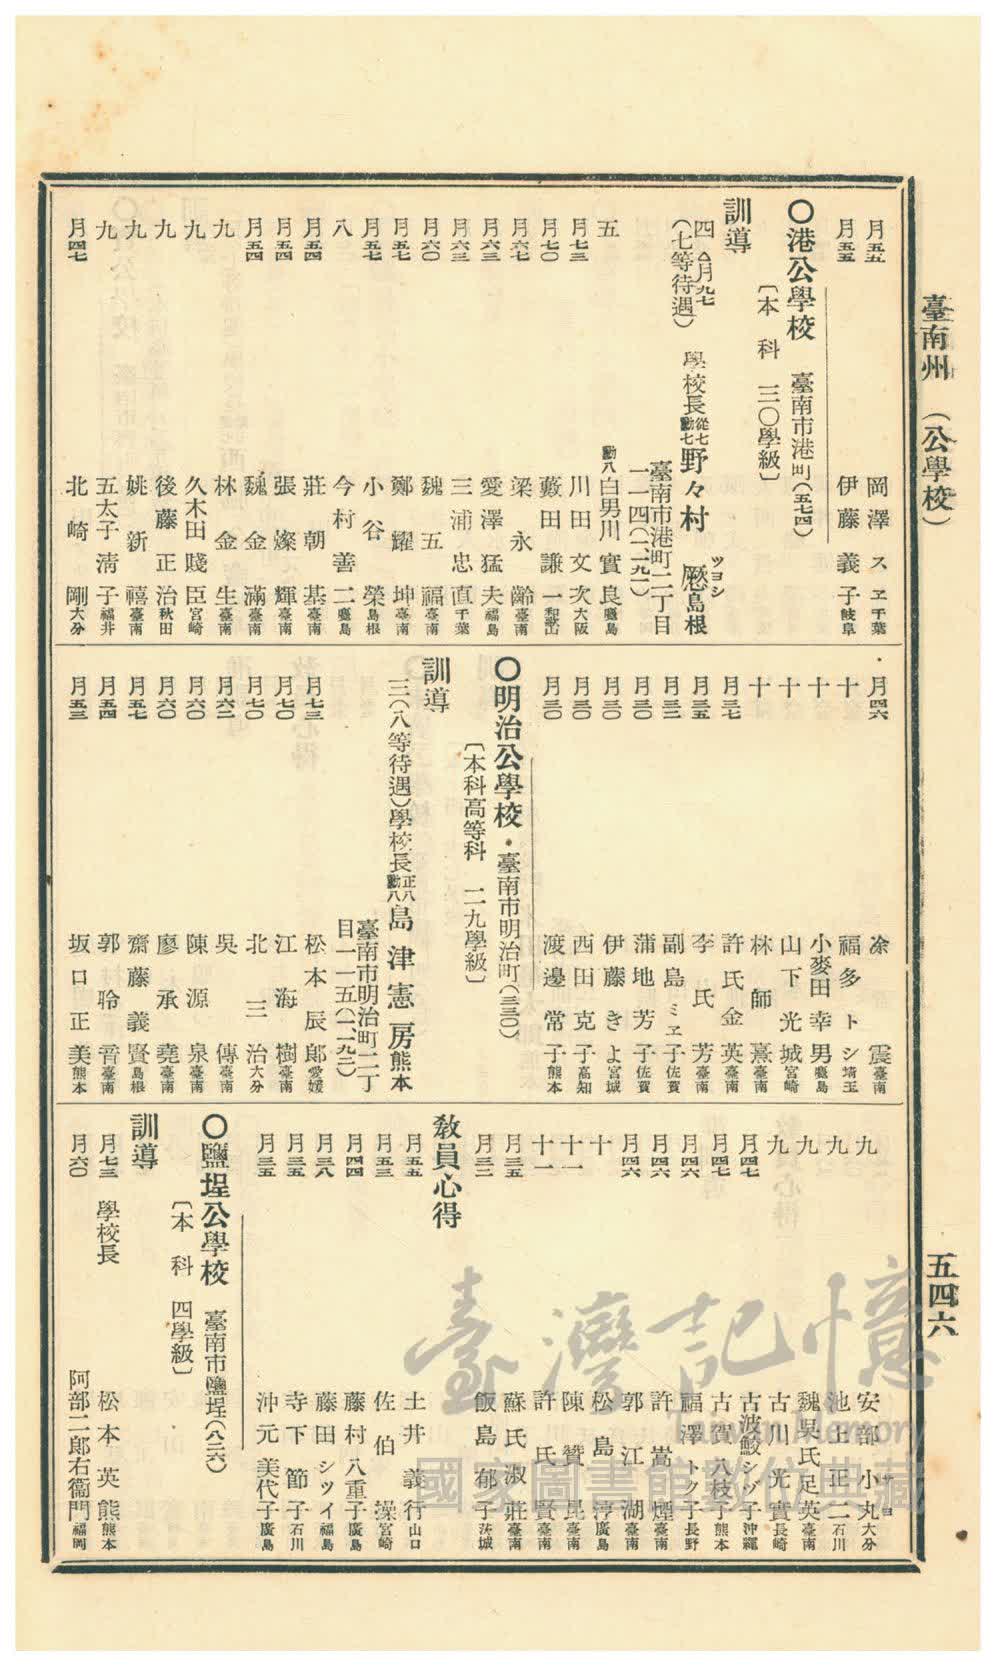 臺南州 (公學校)
五四六
月五五 岡澤スヱ 千葉
月五五 伊藤義子 岐阜
〇港公學校 臺南市港町(五七四)
〔本科 三〇學級〕
訓導
四 △月九七 學校長 從七勳七 野々村 ツヨシ 島根
(七等待遇) 臺南市港町二丁目
一一四(一二九一)
五 勳八 白男川實良 鹿兒島
月七三 川田文次 大阪
月七〇 藪田謙一 和歌山
月六七 梁永齡 臺南
月六三 愛澤猛夫 福島
月六三 三浦忠直 千葉
月六〇 魏五福 臺南
月五七 鄭耀坤 臺南
月五七 小谷榮 島根
八 今村善二 鹿兒島
月五四 莊朝基 臺南
月五四 張燦輝 臺南
月五四 魏金滿 臺南
九 林金生 臺南
九 久木田賤臣 宮崎
九 後藤正治 秋田
九 姚新禧 臺南
九 五太子淸子 福井
月四七 北崎剛 大分
月四六 凃震 臺南
十 福多トシ 埼玉
十 小麥田幸男 鹿兒島
十 山下光城 宮崎
十 林師熹 臺南
月三七 許氏金英 臺南
月三五 李氏芳 臺南
月三二 副島ミヱ子 佐賀
月三〇 蒲地芳子 佐賀
月三〇 伊藤きよ 宮城
月三〇 西田克子 高知
月三〇 渡邊常子 熊本
〇明治公學校・臺南市明治町(三三〇)
〔本科高等科 二九學級〕
訓導
三(八等待遇)學校長 正八勳八 島津憲房 熊本
臺南市明治町二丁
目一一五(一二九二)
月七三 松本辰郎 愛媛
月七〇 江海樹 臺南
月七〇 北三治 大分
月六二 吳傳 臺南
月六〇 陳源泉 臺南
月六〇 廖承堯 臺南
月五七 齋藤義賢 島根
月五四 郭聆音 臺南
月五三 坂口正美 熊本
九 安部小丸 大分
九 池上正二 石川
九 魏杲氏足英 臺南
九 古川光實 長崎
月四七 古波鮫シヅ子 沖繩
月四七 古賀八枝子 熊本
月四六 福澤トク子 長野
月四六 許嵩煙 臺南
月四六 郭江湖 臺南
十 松島淳 廣島
十一 陳贊昆 臺南
十一 許氏賢 臺南
月三五 蘇氏淑莊 臺南
月三二 飯島郁子 茨城
敎員心得
月五五 土井義行 山口
月五三 佐伯操 宮崎
月四四 藤村八重子 廣島
月三八 藤田シツイ 福島
月三五 寺下節子 石川
月三五 沖元美代子 廣島
〇鹽埕公學校 臺南市鹽埕(八三六)
〔本科 四學級〕
訓導
月七三 學校長 松本英熊 熊本
月六〇 阿部二郎右衞門 福岡
臺灣記憶
Taiwan Memory
國家圖書館數位典藏